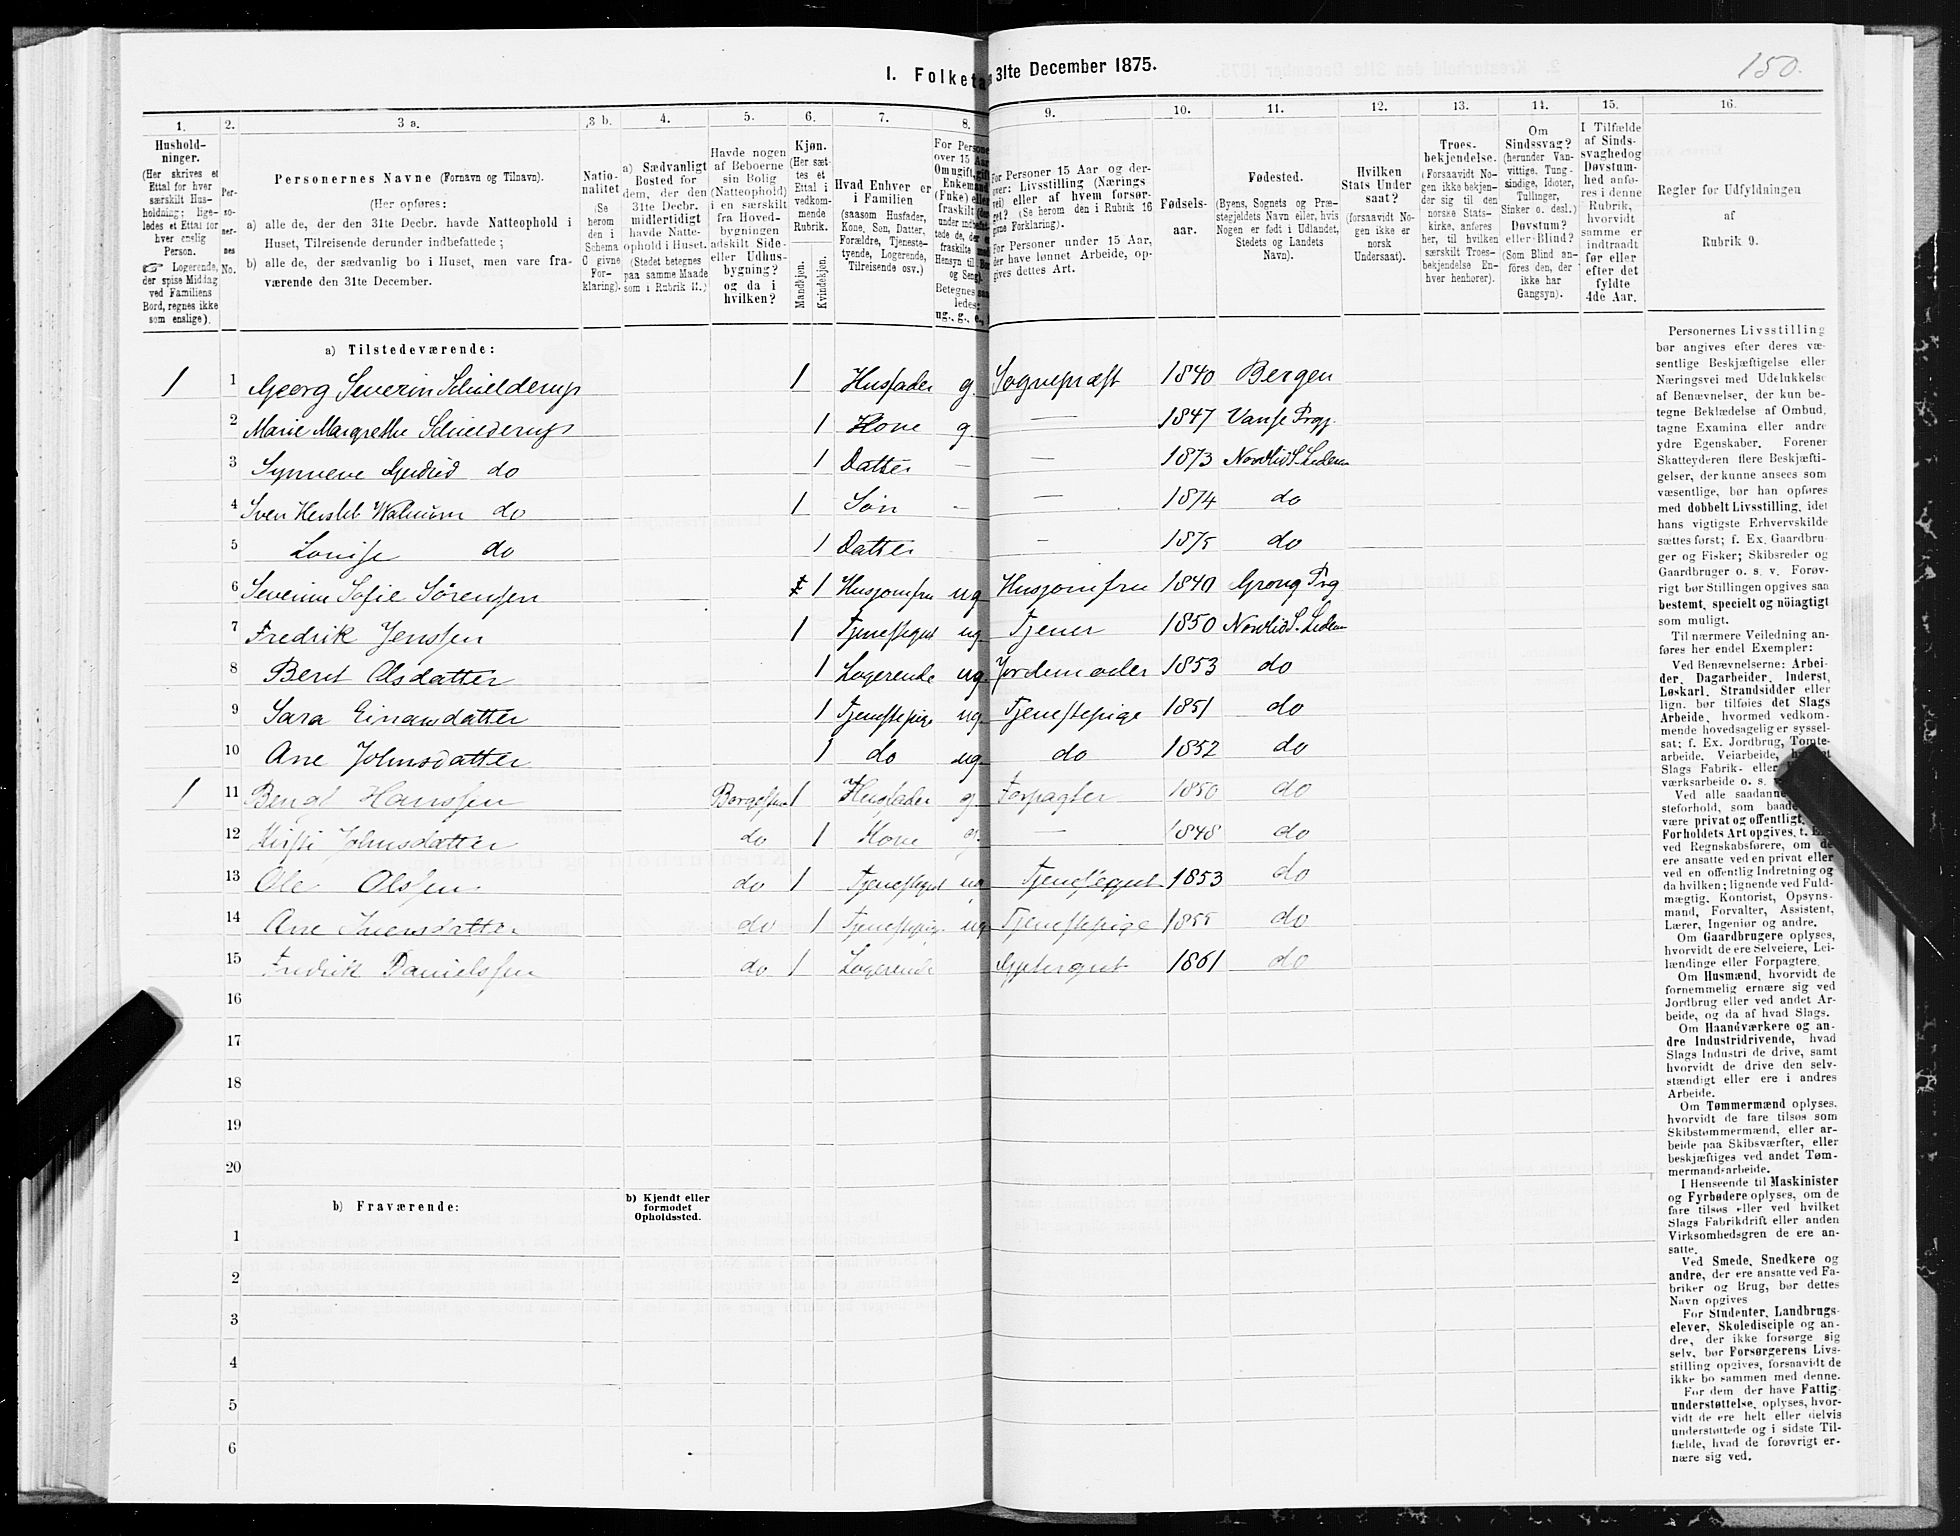 150.
I. Folketa 31te December 1875.
1. 2. 3 a. 3 b. 4. 5. 6. 7. 8. 9. 10. 11. 12. 13. 14. 15. 16.
Hushold-
ninger.
(Her skrives et
Ettal for hver
særskilt Hus-
holdning; lige-
ledes et Ettal for
hver enslig
Person.
☞ Logerende,
der spise Middag
ved Familiens
Bord, regnes ikke
som enslige).
Per-
so-
ner-
nes
No.
Personernes Navne (Fornavn og Tilnavn).
(Her opføres:
a) alle de, der den 31te Decbr. havde Natteophold i
Huset, Tilreisende derunder indbefattede;
b) alle de, der sædvanlig bo i Huset, men vare fra-
værende den 31te December.
Natio-
nalitet
(Se
herom
den i
Schema
C givne
For-
klaring).
a) Sædvanligt
Bosted for
dem, der den
31te Decbr.
midlertidigt
havde Natte-
ophold i Huset.
(Stedet betegnes
paa samme Maade
som i Rubrik 11.)
Havde nogen
af Beboerne
sin Bolig
(Natteophold)
i en særskilt
fra Hoved-
bygningen
adskilt Side-
eller Udhus-
bygning?
og da i
hvilken?
Kjøn.
(Her sæt-
tes et
Ettal i
vedkom-
mende
Rubrik.
Mandkjøn.
Kvindekjøn.
Hvad Enhver er
i Familien
(saasom Husfader,
Kone, Søn, Datter,
Forældre, Tjeneste-
tyende, Logerende,
Tilreisende osv.)
For Persone
over 15 Aar
Om ugift, gift
Enkemand
(Enke) eller
fraskilt
Betegnes saa
ledes:
ug., g., e.,
For Personer 15 Aar og der-
over: Livsstilling (Nærings
vei) eller af hvem forsør-
get? (Se herom den i Rubrik 16
givne Forklaring).
For Personer under 15 Aar,
der have lønnet Arbeide, op-
gives dettes Art.
Fødsels-
aar.
Fødested.
(Byens, Sognets og Præ-
stegjeldets Navn eller, hvis
Nogen er født i Udlandet,
Stedets og Landets
Navn).
Hvilken
Stats Under
saat?
(forsaavidt No-
gen ikke er
norsk
Undersaat).
Troes-
bekjendelse.
(Forsaavidt No-
gen ikke bekjen-
der sig til den
norske Stats-
kirke, anføres
her, til hvilken
særskilt Troes-
bekjendelse En-
hver henhører).
Om
Sindssvag?
(herunder Van-
vittige, Tung-
sindige, Idioter,
Tullinger,
Sinker o. desl.)
Døvstum?
eller Blind?
(Som Blind an-
føres den, der
ikke har
Gangsyn).
I Tilfælde
af Sinds-
svaghed og
Døvstum-
hed anfø-
res i denne
Rubrik,
hvorvidt
samme er
indtraadt
før eller
efter det
fyldte
4de Aar.
Regler for Udfyldningen
af
Rubrik 9.
a) Tilstedeværende:
1 1 Georg Severin Schielderup 1 Husfader g. Sognepræst 1840 Bergen
2 Marie Margrethe Schielderup 1 Kone g. — 1847 Vanse Prgj.
3 Synneve Gudrid do 1 Datter — — 1873 Nordlid S. Ledem
4 Sven Herslel Walnum do 1 Søn — — 1874 do
5 Louise do 1 Datter — 1875 do
6 Severine Sofie Sørensen 1 Husjomfru ug Husjomfru 1840 Grong Prg
7 Fredrik Jenssen 1 Tjenestegut ug. Tjener 1850 Nordlid S. Ledem
8 Beret Olsdatter 1 Logerende ug. Jordemoder 1853 do
9 Sara Einarsdatter 1 Tjenestepige ug. Tjenestepige 1851 do
10 Ane Johnsdatter 1 do ug. do 1852 do
1 11 Bengt Hanssen Borgestue 1 Husfader g. Forpagter 1850 do
12 Kirsti Johnsdatter do 1 Kone g. — 1848 do
13 Ole Olssen do 1 Tjenestegut ug Tjenestegut 1853 do
14 Ane Iversdatter do 1 Tjenestepige ug Tjenestepige 1855 do
15 Fredrik Danielssen do 1 Logerende Gjetergut 1861 do
16
17
18
19
20
b) Fraværende:
b) Kjendt eller
formodet
Opholdssted.
1
2
3
4
5
6
Personernes Livsstilling
bør angives efter deres væ-
sentlige Beskjæftigelse eller
Næringsvei med Udelukkelse
af Benævnelser, der kun be-
tegne Beklædelse af Ombud,
tagne Examina eller andre
ydre Egenskaber. Forener
Skatteyderen flere Beskjæfti-
gelser, der kunne ansees som
væsentlige, bør han opføres
med dobbelt Livsstilling, idet
hans vigtigste Erhvervskilde
sættes først; f. Ex. Gaardbru-
ger og Fisker; Skibsreder og
Gaardbruger o. s. v. Forøv-
rigt bør Stillingen opgives saa
bestemt, specielt og nöiagtigt
som muligt.
Til nærmere Veiledning an-
føres her endel Exempler:
Ved Benævnelserne: Arbei-
der, Dagarbeider, Inderst,
Løskarl, Strandsidder eller
lign. bør tilføies det Slags
Arbeide, hvormed vedkom-
mende hovedsagelig er syssel-
sat; f. Ex. Jordbrug, Tomte-
arbeide, Veiarbeide,
Slags Fabrik- eller
værksarbeide o. s.
Ved alle saadanne
steforhold, som baade
være privat og offentligt,
Forholdets Art opgives, t. Ex.
ved Regnskabsførere, om de
ere ansatte ved en privat eller
ved en offentlig Indretning og
da hvilken; lignende ved Fuld-
mægtig, Kontorist, Opsyns-
mand, Forvalter, Assistent,
Lærer, Ingeniør og andre.
Om Gaardbrugere oplyses,
hvorvidt de ere Selveiere, Lei-
lændinge eller Forpagtere.
Om Husmænd, hvorvidt de
fornemmelig ernære sig ved
Jordbrug eller ved andet Ar-
beide, og da af hvad Slags.
Om Haandværkere og an-
dre Industridrivende, hvad
Slags Industri de drive, samt
hvorvidt de drive den selv-
stændigt eller ere i andres
Arbeide.
Om Tømmermænd oplyses,
hvorvidt de fare tilsøs som
Skibstømmermænd, eller ar-
beide paa Skibsværfter, eller
beskjæftiges ved andet Tøm-
mermandsarbeide.
I Henseende til Maskinister
og Fyrbødere oplyses, om de
fare tilsøs eller ved hvilket
Slags Fabrikdrift eller anden
Virksomhedsgren de ere an-
satte.
Ved Smede, Snedkere og
andre, der ere ansatte ved Fa-
briker og Brug, bør dettes
Navn opgives
For Studenter, Landbrugs-
elever, Skoledisciple og an-
dre, der ikke forsørge sig
selv, bør Forsørgerens Livs-
stilling opgives, forsaavidt de
ikke bo sammen med denne.
For dem der have Fattig-
understøttelse, oplyses, hvor-
vidt de ere helt eller delvis
understøttede og i sidste Til-
fælde, hvad de forøvrigt er-
nære sig ved.